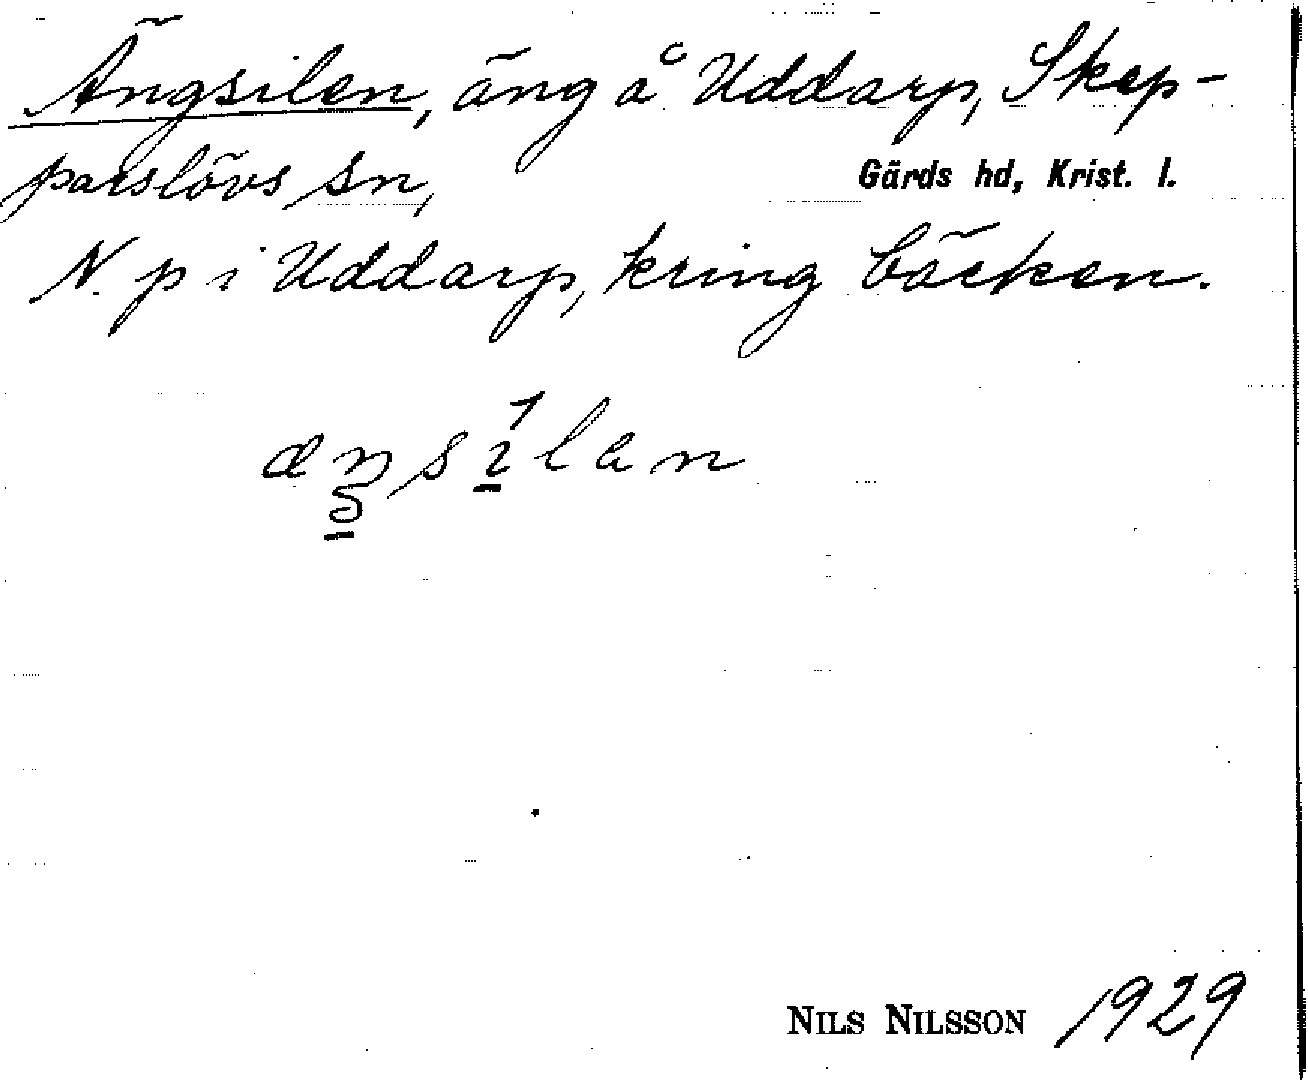 Ängsilen, äng å Uddarp, Skep-
parslövs sn,
Gärds hd, Krist. l.
N. p i Uddarp, kring bäcken.
NILS NILSSON 1929